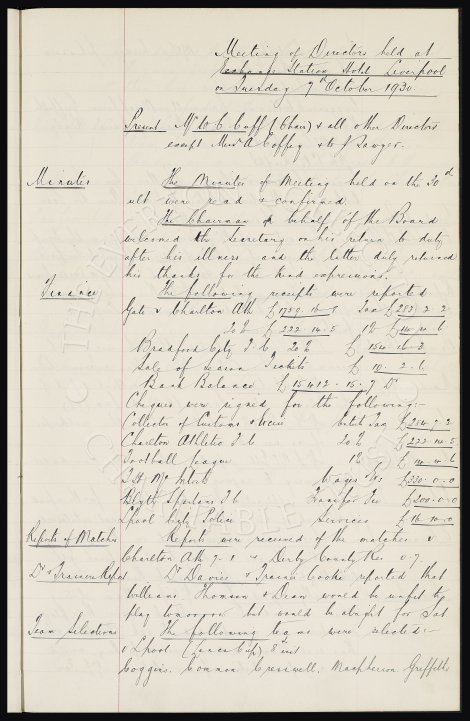 Meeting of Directors held at
Exchange Station Hotel Liverpool
on Tuesday 7th October 1930.
Present Mr W C Cuff (Chair) & all other Directors
except Messrs A Coffey & J Sawyer.
Minutes The Minutes of Meeting held on the 30th
ult were read & confirmed.
The Chairman on behalf of the Board
welcomed the Secretary on his return to duty
after his illness and the latter duly returned
his thanks for the kind expressions.
Finance The following receipts were reported
Gate v Charlton Ath £1759. 16. 8 Tax £283. 2. 2
20% £222. 14. 5 1% £14. 4. 6
Bradford City F. C. 20% £ 154. 16. 3
Sale of Season Tickets £ 10. 2. 6
Bank Balance £15412. 15. 7 Dr
Cheques were signed for the following:-
Collector of Customs & Excise Entert Tax £284. 7. 2
Charlton Athletic F. C 20% £222. 14. 5
Football League 1% £ 14. 4. 6
T. H. McIntosh Wages &c £330. 0. 0
Blyth Spartans F. C Transfer Fee £200. 0. 0
L'pool City Police Services £16. 10. 0
Reports of Matches Reports were received of the matches v
Charlton Ath 7. 1 & Derby County Res 0. 7
Dr & Trainers Report Dr Davies & Trainer Cooke reported that
Williams. Thomson & Dean would be unfit to
play tomorrow but would be alright for Sat
Team Selections The following teams were selected:-
v L'pool (Lancs Cup) 8 inst
Coggins. Common Cresswell. Macpherson Griffiths